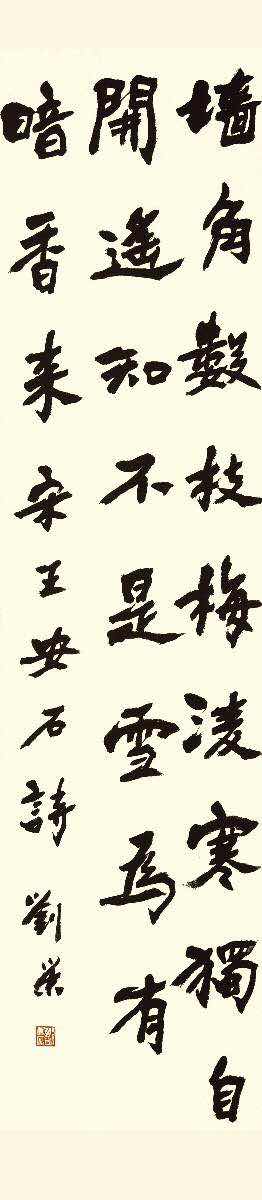 墙角數枝梅凌寒獨自
開遥知不是雪為有
暗香来宋王安石詩劉